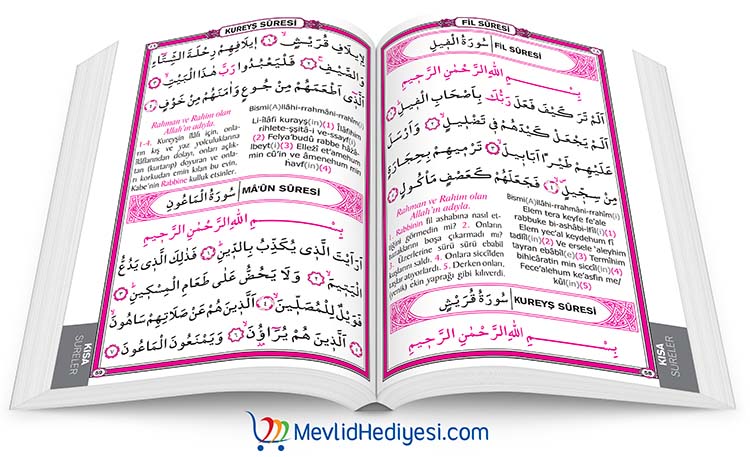 FİL SÛRESİ
سُورَةُ الْفِيلِ FİL SÛRESİ
بِسْمِ اللّٰهِ الرَّحْمٰنِ الرَّحِيمِ
اَلَمْ تَرَ كَيْفَ فَعَلَ رَبُّكَ بِاَصْحَابِ الْفِيلِ ١
اَلَمْ يَجْعَلْ كَيْدَهُمْ فِي تَضْلِيلٍ ٢ وَاَرْسَلَ
عَلَيْهِمْ طَيْرًا اَبَابِيلَ ٣ تَرْمِيهِمْ بِحِجَارَةٍ
مِنْ سِجِّيلٍ ٤ فَجَعَلَهُمْ كَعَصْفٍ مَأْكُولٍ ٥
Rahman ve Rahim olan
Allah'ın adıyla.
1. Rabbinin fil ashabına nasıl et-
tiğini görmedin mi? 2. Onların
tuzaklarını boşa çıkarmadı mı?
3. Üzerlerine sürü sürü ebabil
kuşlarını saldı. 4. Onlara siccilden
taşlar atıyorlardı. 5. Derken onları,
(yenik) ekin yaprağı gibi kılıverdi.
Bismi(A)llâhi-rrahmâni-rrahîm(i)
Elem tera keyfe fe'ale
rabbuke bi-ashâbi-lfîl(i)(1)
Elem yec'al keydehum fî
tadlîl(in)(2) Ve ersele 'aleyhim
tayran ebâbîl(e)(3) Termîhim
bihicâratin min siccîl(in)(4)
Fece'alehum ke'asfin me/
kûl(in)(5)
سُورَةُ قُرَيْشٍ KUREYŞ SÛRESİ
بِسْمِ اللّٰهِ الرَّحْمٰنِ الرَّحِيمِ
58
KISA
SURELER
KUREYŞ SÛRESİ
لِاِيلَافِ قُرَيْشٍ ١ اِيلَافِهِمْ رِحْلَةَ الشِّتَاءِ
وَالصَّيْفِ ٢ فَلْيَعْبُدُوا رَبَّ هٰذَا الْبَيْتِ ٣
اَلَّذِي اَطْعَمَهُمْ مِنْ جُوعٍ وَاٰمَنَهُمْ مِنْ خَوْفٍ ٤
Rahman ve Rahim olan
Allah'ın adıyla.
1-4. Kureyşin îlâfı için, onla-
rın kış ve yaz yolculuklarına
îlâflarından dolayı, onları açlık-
tan (kurtarıp) doyuran ve onla-
rı korkudan emin kılan bu evin,
Kabe'nin Rabbine kulluk etsinler.
Bismi(A)llâhi-rrahmâni-rrahîm(i)
Li-îlâfi kurayş(in)(1) Îlâfihim
rihlete-şşitâ-i ve-ssayf(i)
(2) Felya'budû rabbe hâzâ-
lbeyt(i)(3) Ellezî et'amehum
min cû'in ve âmenehum min
havf(in)(4)
سُورَةُ الْمَاعُونِ MA'ÛN SÛRESİ
بِسْمِ اللّٰهِ الرَّحْمٰنِ الرَّحِيمِ
اَرَاَيْتَ الَّذِي يُكَذِّبُ بِالدِّينِ ١ فَذٰلِكَ الَّذِي يَدُعُّ
الْيَتِيمَ ٢ وَلَا يَحُضُّ عَلٰى طَعَامِ الْمِسْكِينِ ٣
فَوَيْلٌ لِلْمُصَلِّينَ ٤ اَلَّذِينَ هُمْ عَنْ صَلَاتِهِمْ سَاهُونَ ٥
اَلَّذِينَ هُمْ يُرَاؤُنَ ٦ وَيَمْنَعُونَ الْمَاعُونَ ٧
59
KISA
SURELER
MevlidHediyesi.com